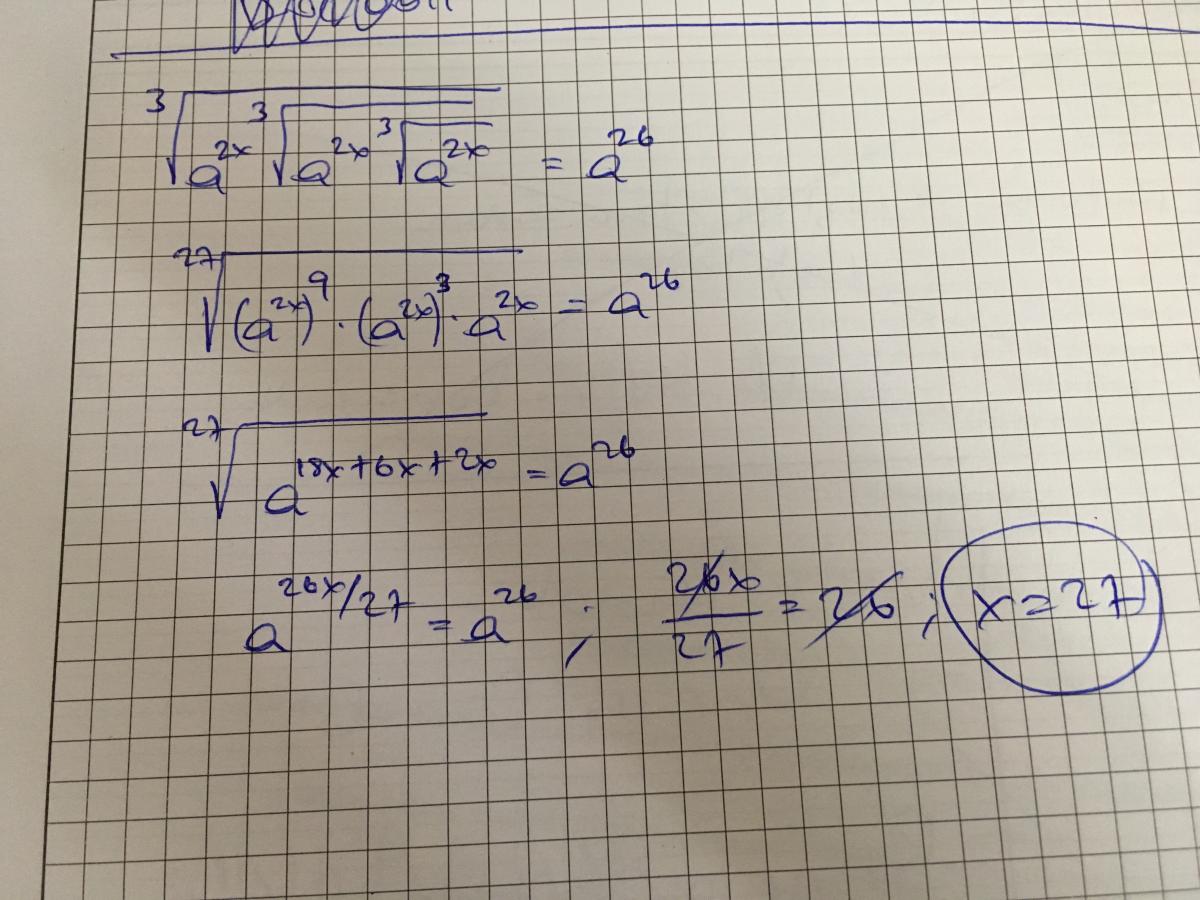 ∛(a^{2x} ∛(a^{2x} ∛(a^{2x}))) = a^{26}
²⁷√((a^{2x})^9 · (a^{2x})^3 · a^{2x}) = a^{26}
²⁷√(a^{18x+6x+2x}) = a^{26}
a^{26x/27} = a^{26} ; 26x/27 = 26 ; x=27